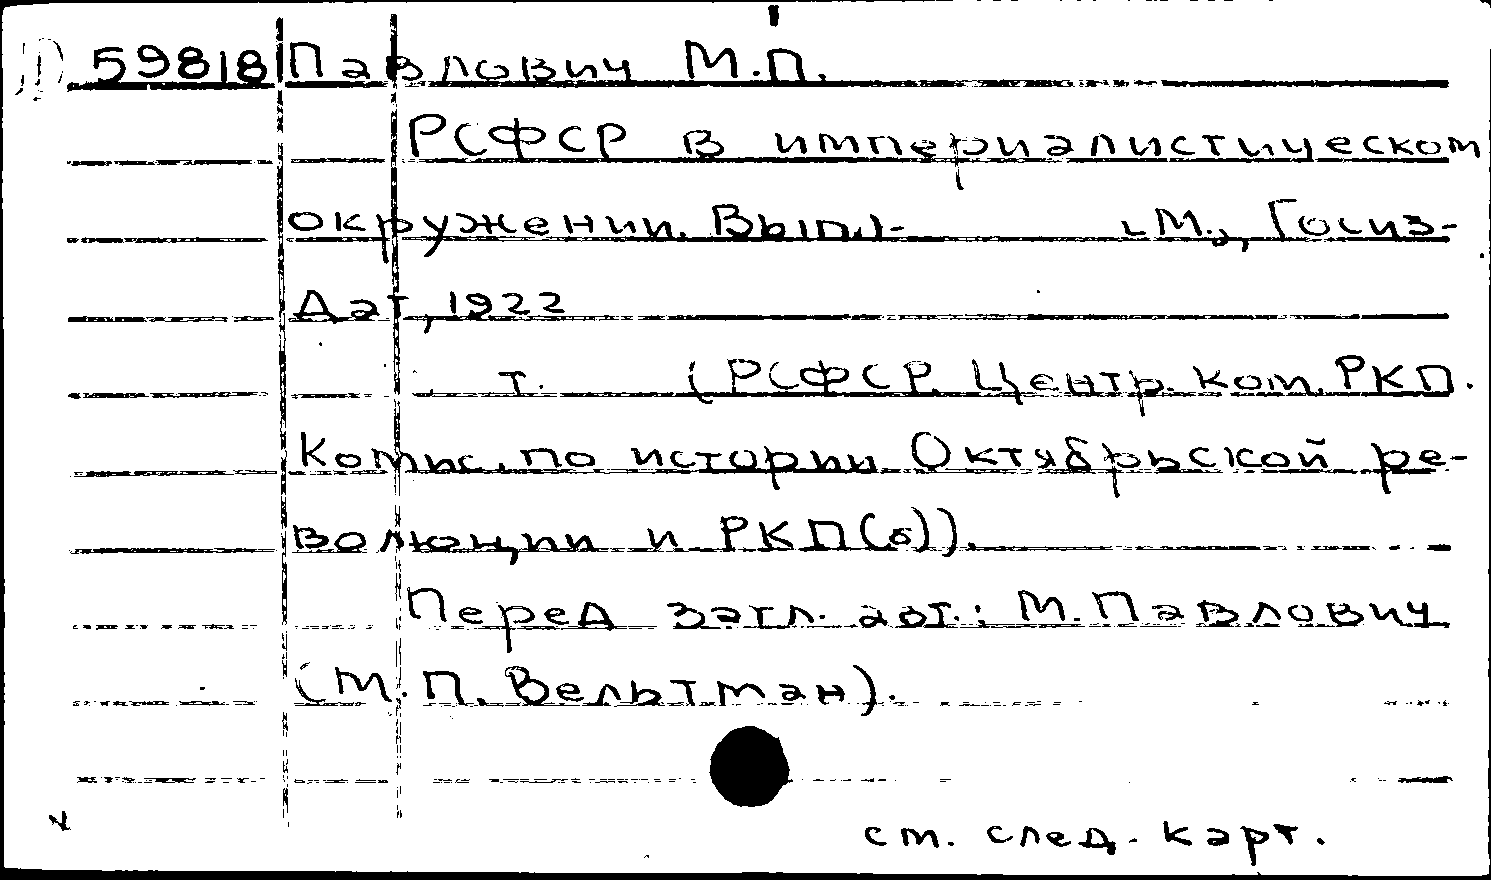 59818 Павлович М.П.
РСФСР в империалистическом
окружении. Вып.1- М., Госиз-
дат, 1922
т. (РСФСР. Центр. ком. РКП.
Комис. по истории Октябрьской ре-
волюции и РКП(б)).
Перед загл. авт.: М. Павлович
(М.П. Вельтман).
см. след. карт.